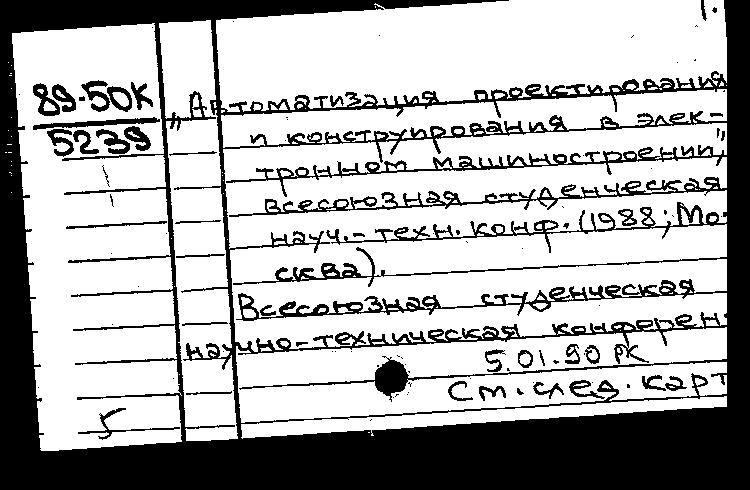 1.
89-50К
5239
„Автоматизация проектирования
и конструирования в элек-
тронном машиностроении",
всесоюзная студенческая
науч.-техн. конф. (1988; Мо-
сква).
Всесоюзная студенческая
научно-техническая конферен-
5.01.90 РК
См. след. карт
5